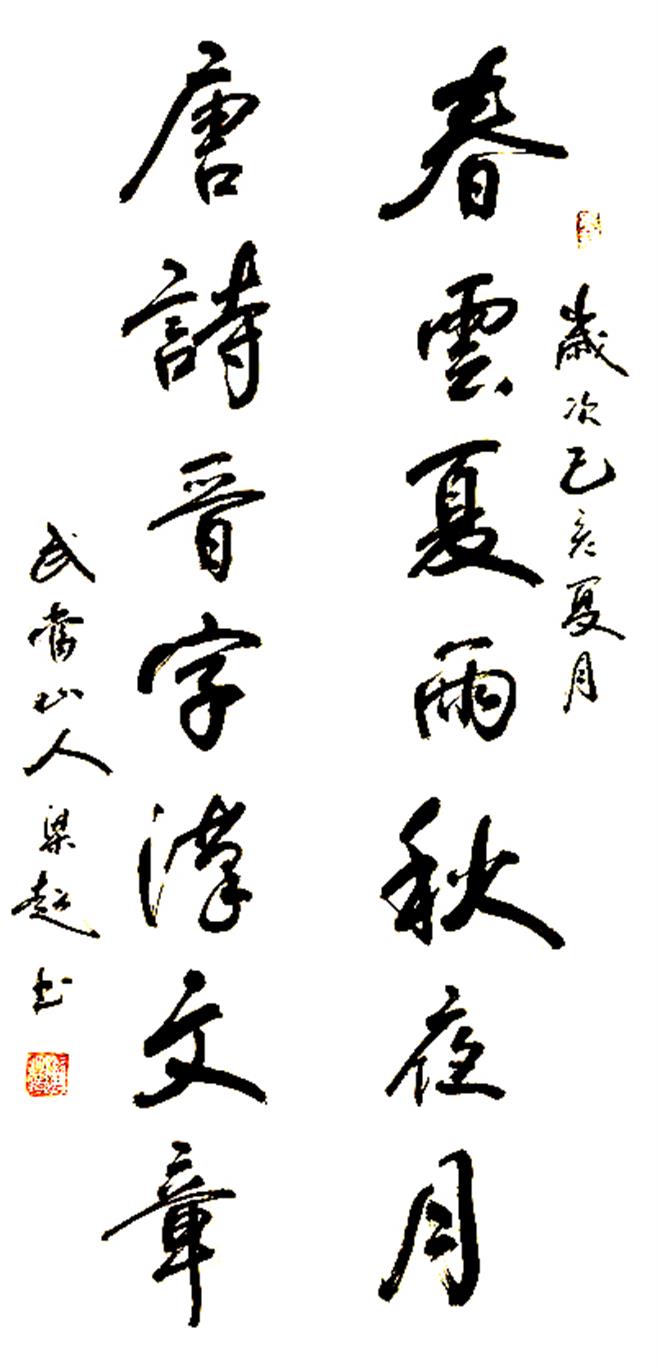 歲次己亥夏月
春雲夏雨秋夜月
唐詩晋字漢文章
武當山人梁超书